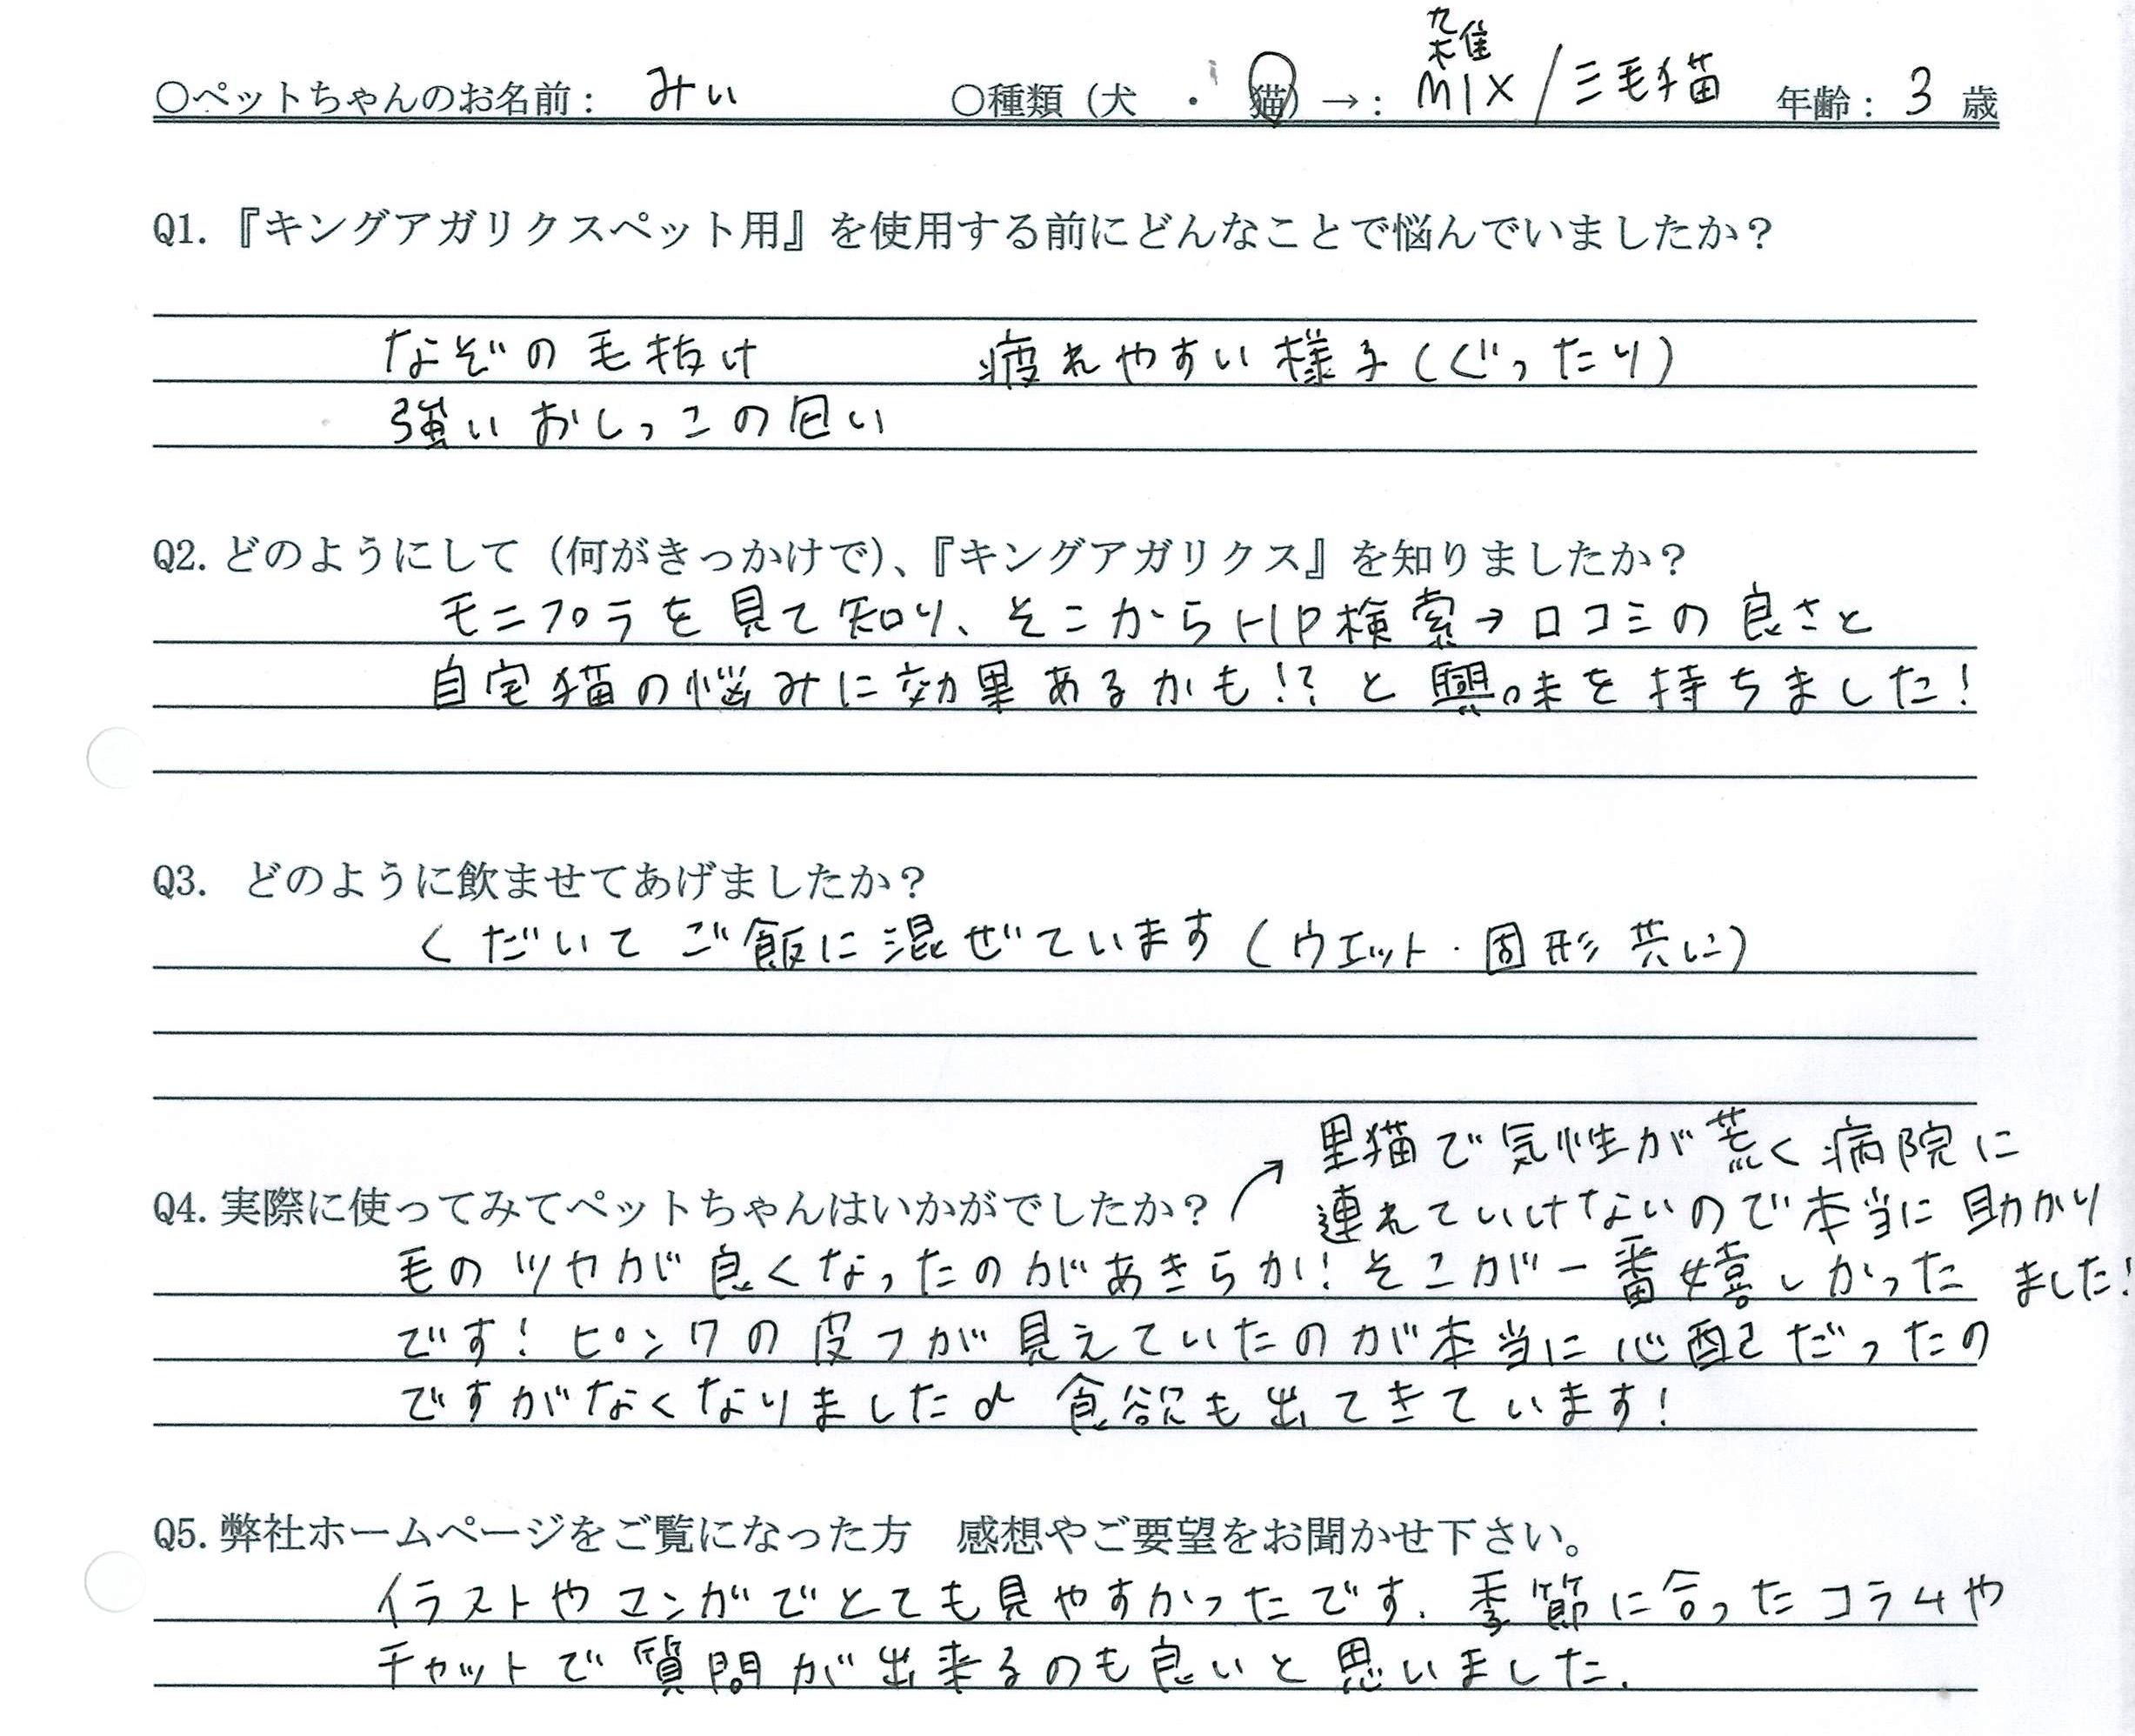 ○ペットちゃんのお名前： みい ○種類（犬 ・ 猫）→： 雑MIX/三毛猫 年齢： 3 歳
Q1.『キングアガリクスペット用』を使用する前にどんなことで悩んでいましたか？
なぞの毛抜け 疲れやすい様子（ぐったり）
強いおしっこの匂い
Q2.どのようにして（何がきっかけで）、『キングアガリクス』を知りましたか？
モニプラを見て知り、そこからHP検索→口コミの良さと
自宅猫の悩みに効果あるかも!?と興味を持ちました!
Q3. どのように飲ませてあげましたか？
くだいてご飯に混ぜています（ウエット・固形共に）
Q4.実際に使ってみてペットちゃんはいかがでしたか？
毛のツヤが良くなったのがあきらか!そこが一番嬉しかった
です!ピンクの皮フが見えていたのが本当に心配だったの
ですがなくなりました♂ 食欲も出てきています!
→ 里猫で気性が荒く病院に
連れていけないので本当に助かり
ました!
Q5.弊社ホームページをご覧になった方 感想やご要望をお聞かせ下さい。
イラストやマンガでとても見やすかったです. 季節に合ったコラムや
チャットで質問が出来るのも良いと思いました.